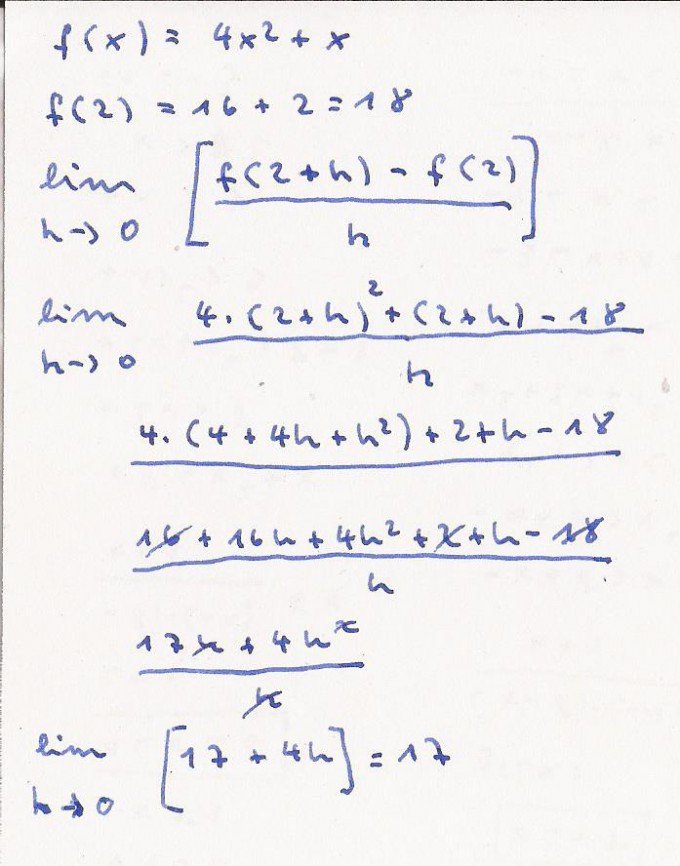 f(x) = 4x² + x
f(2) = 16 + 2 = 18
lim h→0 [ (f(2+h) - f(2)) / h ]
lim h→0 (4·(2+h)² + (2+h) - 18) / h
4·(4 + 4h + h²) + 2 + h - 18
16 + 16h + 4h² + 2 + h - 18 / h
17h + 4h² / h
lim h→0 [17 + 4h] = 17